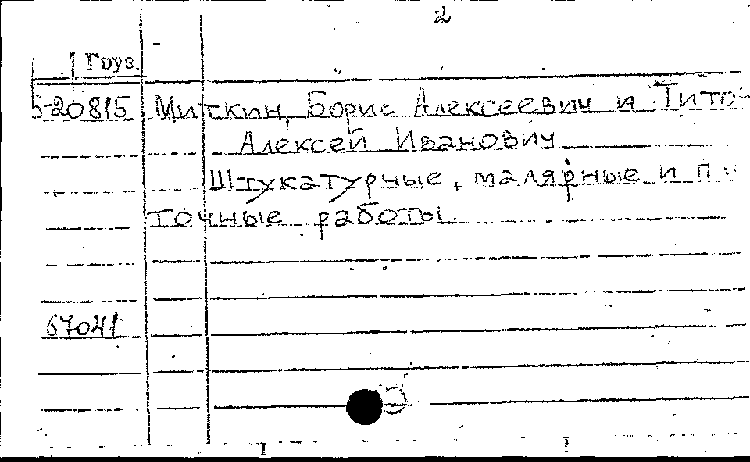 2
Груз.
5-20815 Миткин, Борис Алексеевич и
Алексей Иванович
Штукатурные, малярные и
точные работы
67041